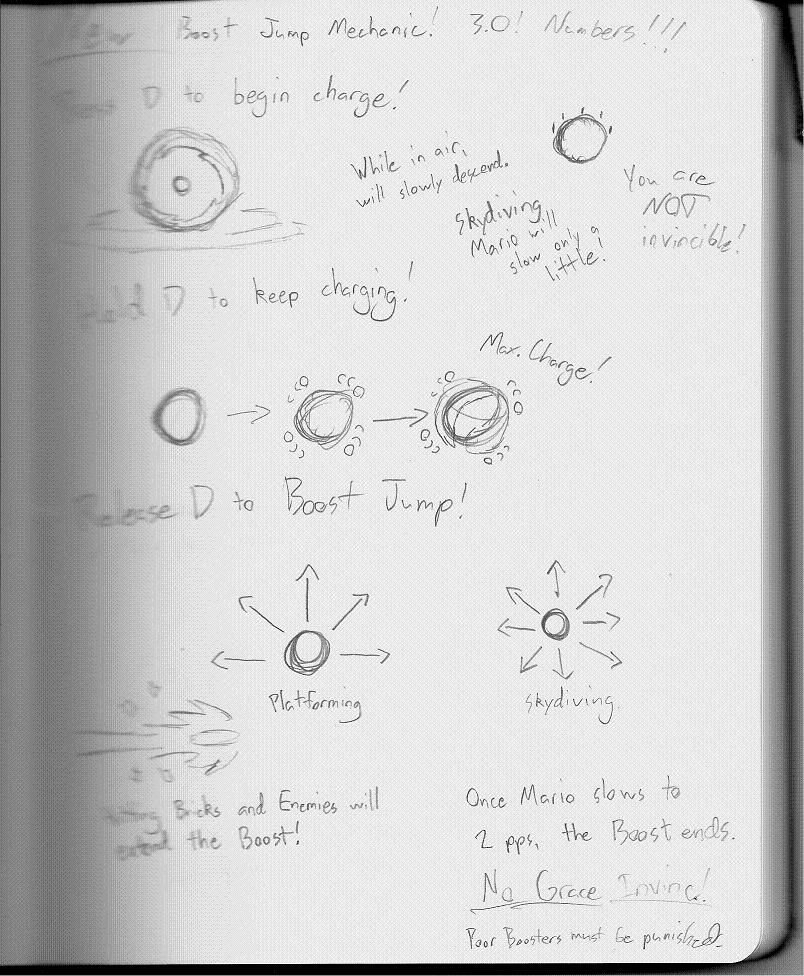 New Boost Jump Mechanic! 3.0! Numbers!!!
Press D to begin charge!
While in air,
will slowly descend.
Skydiving
Mario will
slow only a
little!
You are
NOT
invincible!
Hold D to keep charging!
Max. Charge!
Release D to Boost Jump!
Platforming
Skydiving
Hitting Bricks and Enemies will
extend the Boost!
Once Mario slows to
2 pps, the Boost ends.
No Grace Invinc!
Poor Boosters must be punished.